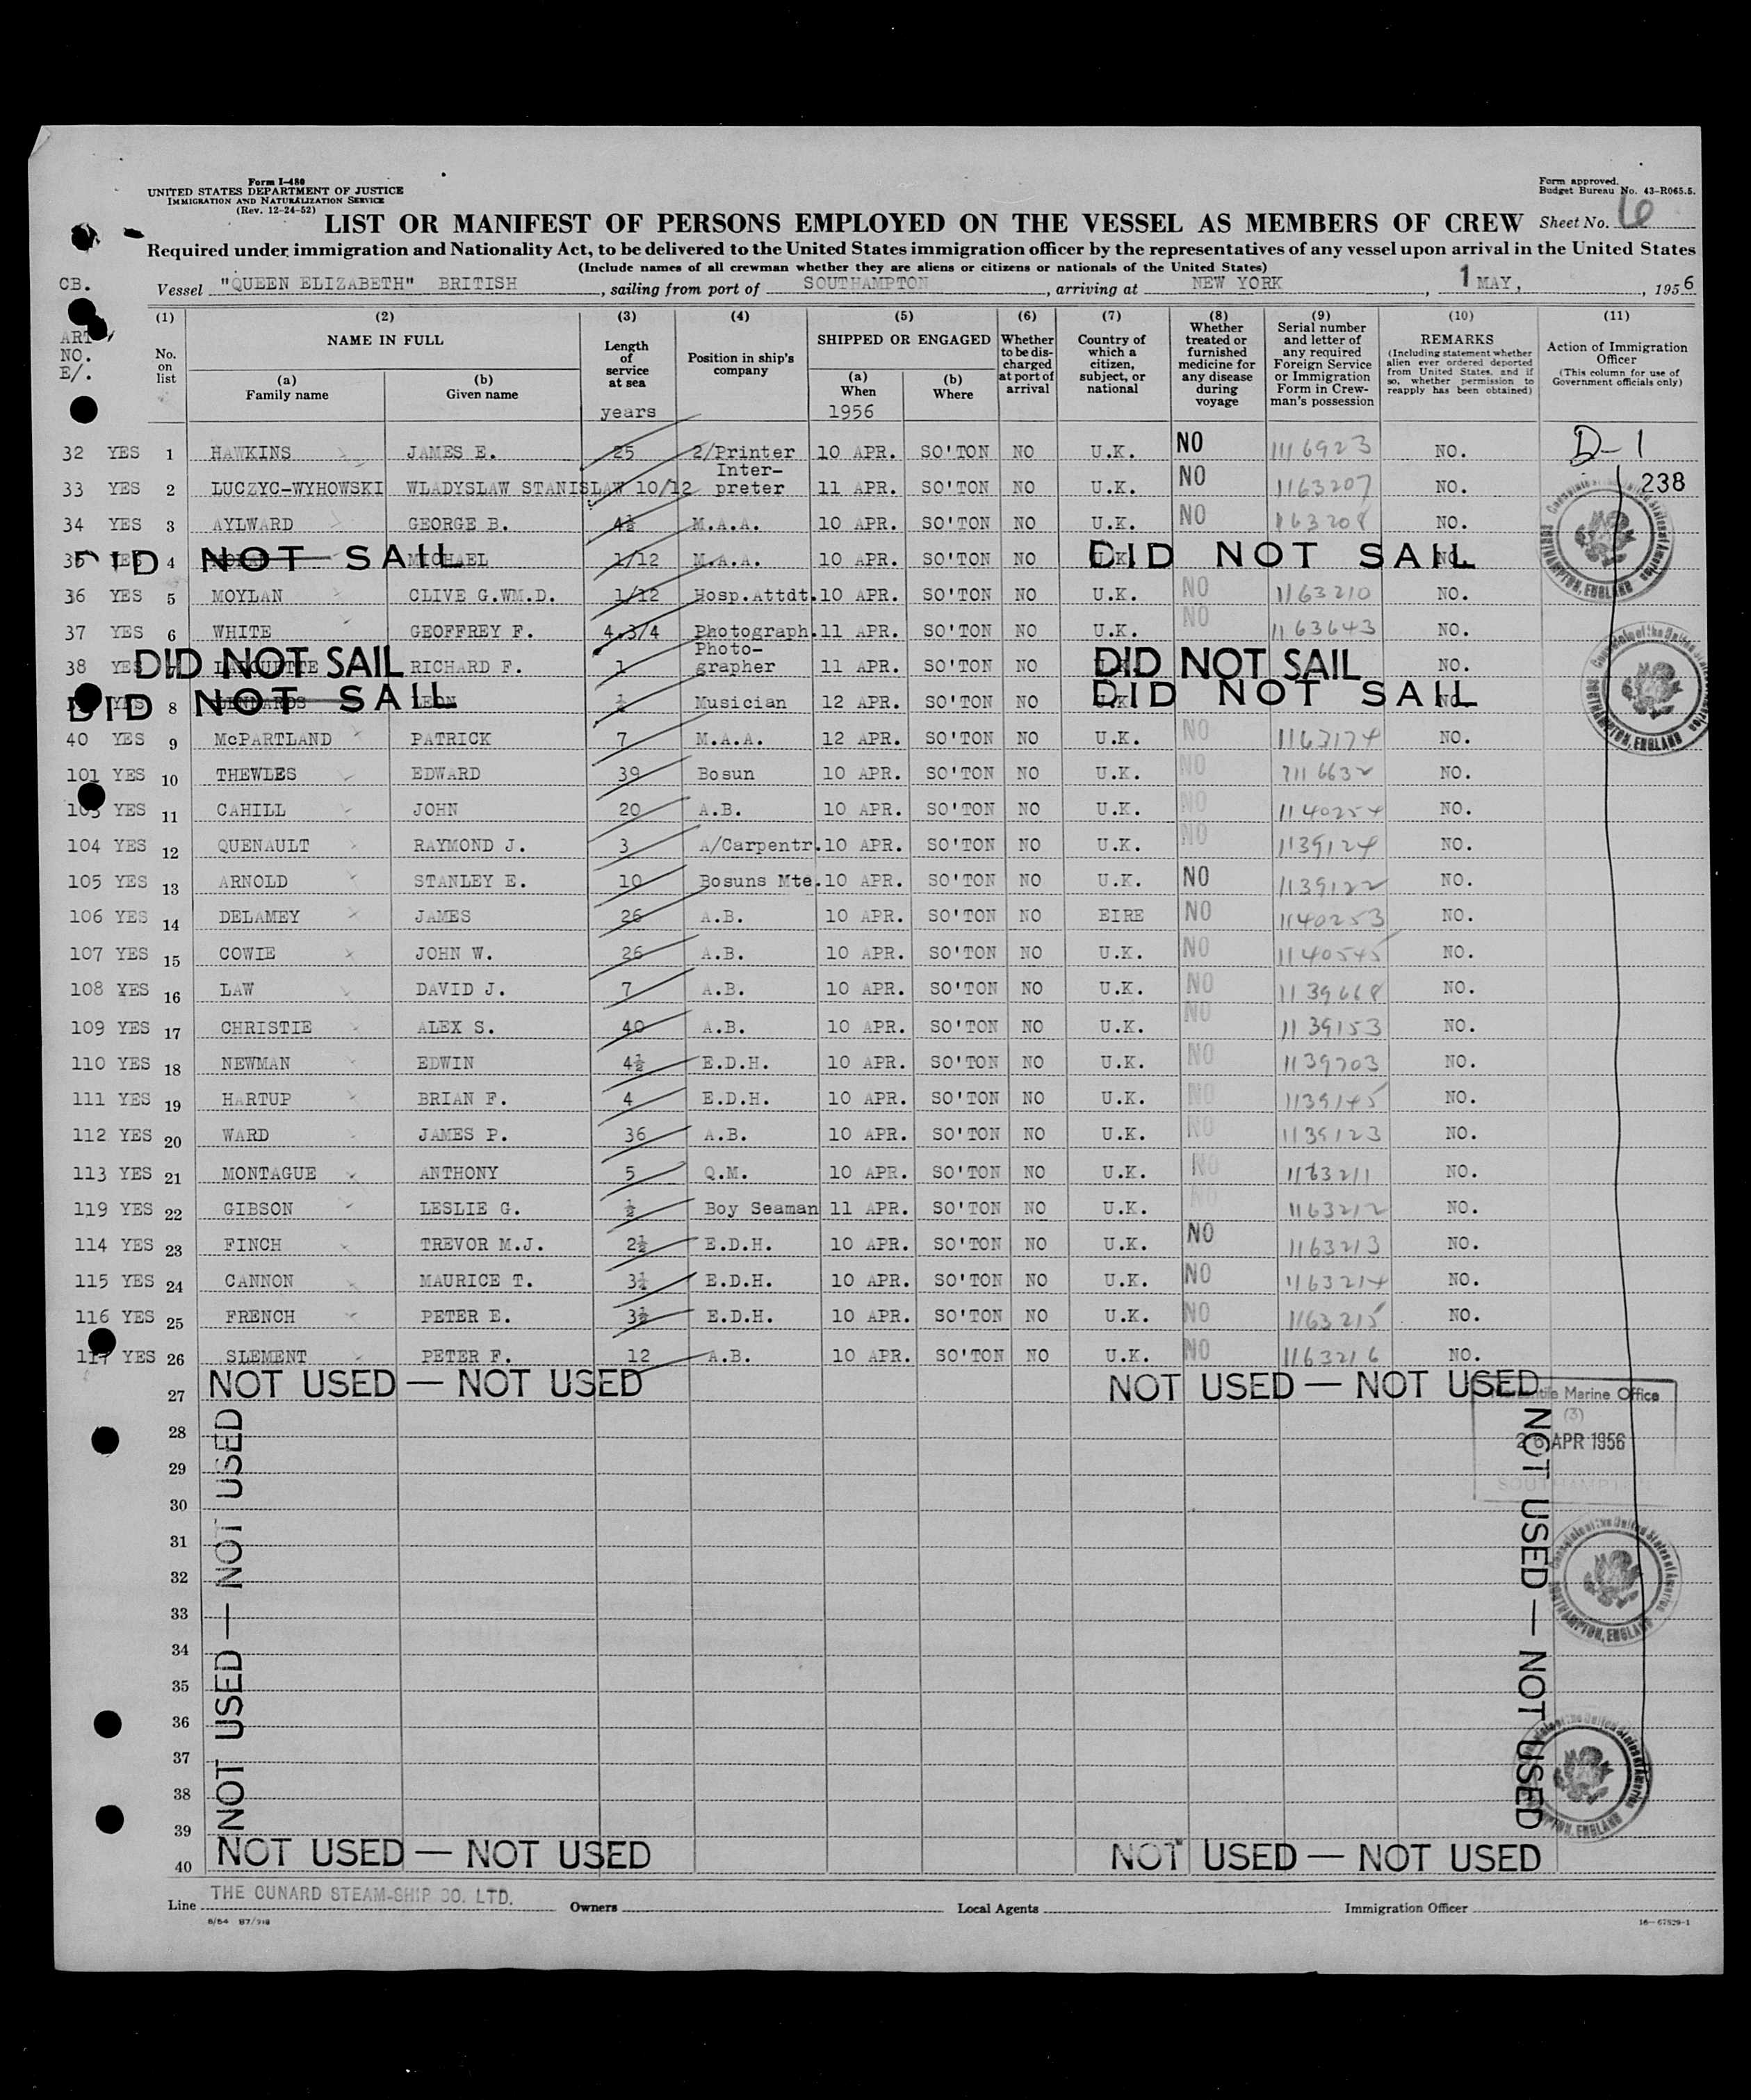 Form I-480
UNITED STATES DEPARTMENT OF JUSTICE
IMMIGRATION AND NATURALIZATION SERVICE
(Rev. 12-24-52)
Form approved.
Budget Bureau No. 43-R065.5.
LIST OR MANIFEST OF PERSONS EMPLOYED ON THE VESSEL AS MEMBERS OF CREW Sheet No. 6
Required under immigration and Nationality Act, to be delivered to the United States immigration officer by the representatives of any vessel upon arrival in the United States
(Include names of all crewman whether they are aliens or citizens or nationals of the United States)
CB. Vessel "QUEEN ELIZABETH" BRITISH, sailing from port of SOUTHAMPTON, arriving at NEW YORK, 1 MAY, 1956
ART
NO.
E/.
(1) No. on list
(2) NAME IN FULL (a) Family name (b) Given name
(3) Length of service at sea years
(4) Position in ship's company
(5) SHIPPED OR ENGAGED (a) When 1956 (b) Where
(6) Whether to be discharged at port of arrival
(7) Country of which a citizen, subject, or national
(8) Whether treated or furnished medicine for any disease during voyage
(9) Serial number and letter of any required Foreign Service or Immigration Form in Crewman's possession
(10) REMARKS (Including statement whether alien ever ordered deported from United States, and if so, whether permission to reapply has been obtained)
(11) Action of Immigration Officer (This column for use of Government officials only)
32 YES 1 HAWKINS JAMES E. 25 2/Printer 10 APR. SO'TON NO U.K. NO 1116923 NO. D-1
33 YES 2 LUCZYC-WYHOWSKI WLADYSLAW STANISLAW 10/12 Inter-preter 11 APR. SO'TON NO U.K. NO 1163207 NO. 238
34 YES 3 AYLWARD GEORGE B. 4½ M.A.A. 10 APR. SO'TON NO U.K. NO 1163208 NO.
35 YES 4 DID NOT SAIL MICHAEL 1/12 M.A.A. 10 APR. SO'TON NO U.K. DID NOT SAIL NO.
36 YES 5 MOYLAN CLIVE G.WM.D. 1/12 Hosp.Attdt. 10 APR. SO'TON NO U.K. NO 1163210 NO.
37 YES 6 WHITE GEOFFREY F. 4.3/4 Photograph. 11 APR. SO'TON NO U.K. NO 1163643 NO.
38 YES DID NOT SAIL RICHARD F. 1 Photo-grapher 11 APR. SO'TON NO DID NOT SAIL NO.
YES 8 DID NOT SAIL ½ Musician 12 APR. SO'TON NO U.K. DID NOT SAIL NO.
40 YES 9 McPARTLAND PATRICK 7 M.A.A. 12 APR. SO'TON NO U.K. NO 1163174 NO.
101 YES 10 THEWLES EDWARD 39 Bosun 10 APR. SO'TON NO U.K. NO 7116632 NO.
103 YES 11 CAHILL JOHN 20 A.B. 10 APR. SO'TON NO U.K. NO 1140254 NO.
104 YES 12 QUENAULT RAYMOND J. 3 A/Carpentr. 10 APR. SO'TON NO U.K. NO 1139124 NO.
105 YES 13 ARNOLD STANLEY E. 10 Bosuns Mte. 10 APR. SO'TON NO U.K. NO 1139122 NO.
106 YES 14 DELAMEY JAMES 26 A.B. 10 APR. SO'TON NO EIRE NO 1140253 NO.
107 YES 15 COWIE JOHN W. 26 A.B. 10 APR. SO'TON NO U.K. NO 1140545 NO.
108 YES 16 LAW DAVID J. 7 A.B. 10 APR. SO'TON NO U.K. NO 1139668 NO.
109 YES 17 CHRISTIE ALEX S. 40 A.B. 10 APR. SO'TON NO U.K. NO 1139153 NO.
110 YES 18 NEWMAN EDWIN 4½ E.D.H. 10 APR. SO'TON NO U.K. NO 1139703 NO.
111 YES 19 HARTUP BRIAN F. 4 E.D.H. 10 APR. SO'TON NO U.K. NO 1139145 NO.
112 YES 20 WARD JAMES P. 36 A.B. 10 APR. SO'TON NO U.K. NO 1139123 NO.
113 YES 21 MONTAGUE ANTHONY 5 Q.M. 10 APR. SO'TON NO U.K. NO 1163211 NO.
119 YES 22 GIBSON LESLIE G. ½ Boy Seaman 11 APR. SO'TON NO U.K. NO 1163212 NO.
114 YES 23 FINCH TREVOR M.J. 2½ E.D.H. 10 APR. SO'TON NO U.K. NO 1163213 NO.
115 YES 24 CANNON MAURICE T. 3¼ E.D.H. 10 APR. SO'TON NO U.K. NO 1163214 NO.
116 YES 25 FRENCH PETER E. 3½ E.D.H. 10 APR. SO'TON NO U.K. NO 1163215 NO.
117 YES 26 SLEMENT PETER F. 12 A.B. 10 APR. SO'TON NO U.K. NO 1163216 NO.
27 NOT USED — NOT USED NOT USED — NOT USED
Marine Office
(3)
28 26 APR 1956
SOUTHAMPTON
29
30
31
32
33
34
35
36
37
38
39
NOT USED — NOT USED — NOT USED
NOT USED — NOT USED
40 NOT USED — NOT USED NOT USED — NOT USED
Consulate of the United States of America
SOUTHAMPTON, ENGLAND
Line THE CUNARD STEAM-SHIP CO. LTD. Owners Local Agents Immigration Officer
6/54 B7/918
16—67829-1